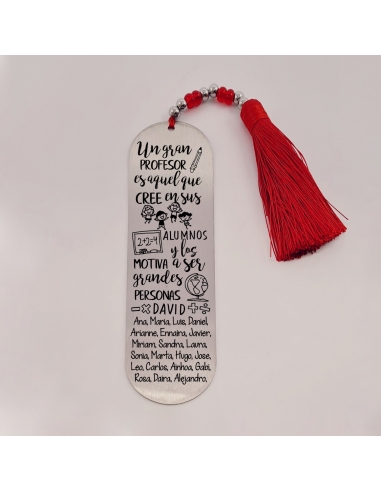 Un gran
PROFESOR
es aquel que
CREE en sus
ALUMNOS
2+2=4
y los
MOTIVA a ser
grandes
PERSONAS
-× DAVID +÷
Ana, María, Luis, Daniel,
Arianne, Ennaira, Javier,
Miriam, Sandra, Laura,
Sonia, Marta, Hugo, Jose,
Leo, Carlos, Ainhoa, Gabi,
Rosa, Daira, Alejandro,